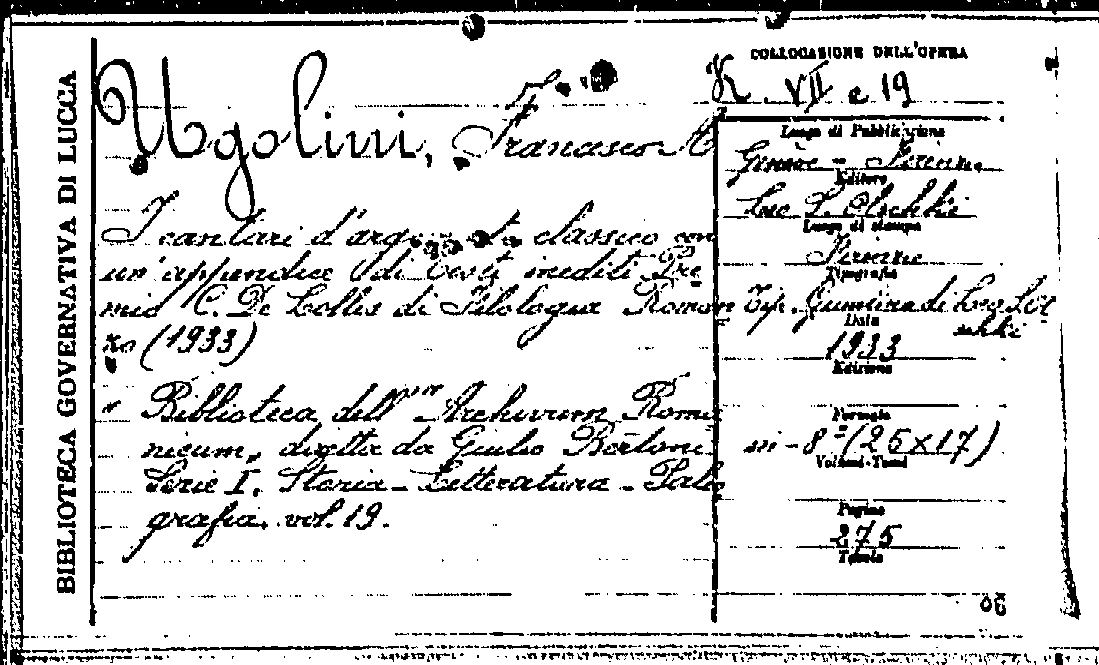 BIBLIOTECA GOVERNATIVA DI LUCCA
Ugolini, Francesco A
I cantari d'argomento classico con
un' appendice di testi inediti Pre
mio C. De Lollis di Filologia Roman
za (1933)
Biblioteca dell' "Archivum Roma
nicum, diretta da Giulio Bertoni
Serie I. Storia - Letteratura - Paleo
grafia. vol. 19.
COLLOCAZIONE DELL'OPERA
VII e 19
Luogo di Pubblicazione
Genève - Firenze
Editore
Leo S. Olschki
Luogo di stampa
Firenze
Tipografia
Tip. Giuntina di Leo S. Ol
schki
Data
1933
Edizione
Formato
in-8° (25x17)
Volumi-Tomi
Pagine
275
Tavole
06